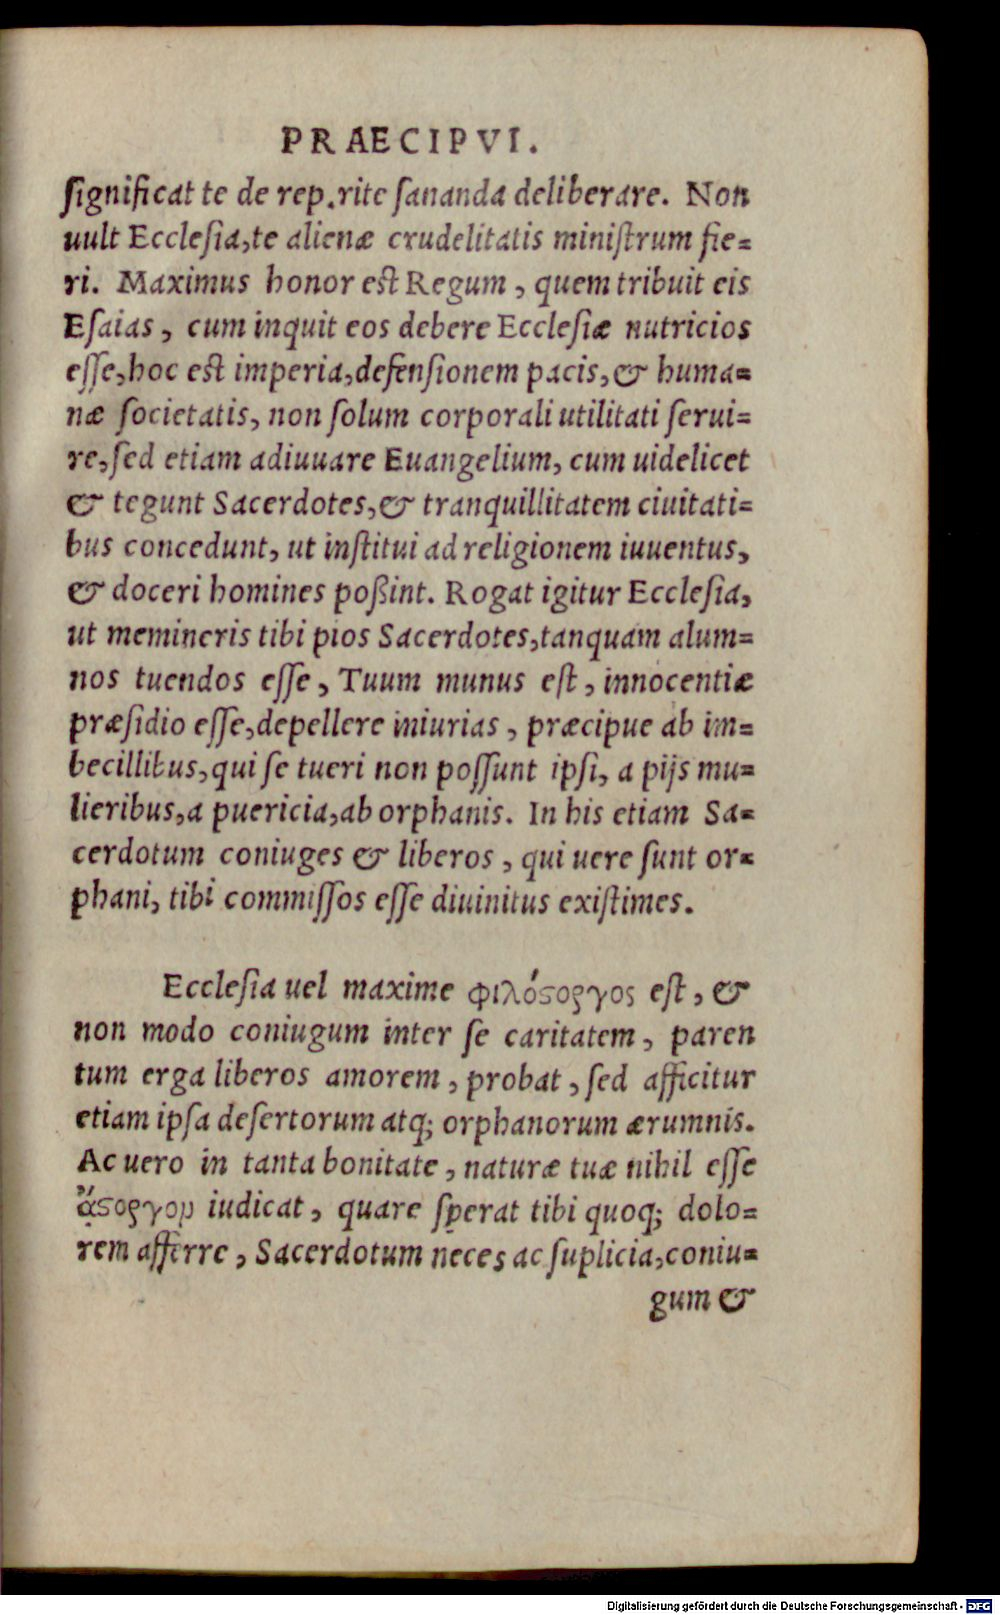 PRAECIPVI.
ſignificat te de rep. rite ſananda deliberare. Non
uult Eccleſia, te alienæ crudelitatis miniſtrum fie=
ri. Maximus honor eſt Regum, quem tribuit eis
Eſaias, cum inquit eos debere Eccleſiæ nutricios
eſſe, hoc eſt imperia, defenſionem pacis, & huma=
næ ſocietatis, non ſolum corporali utilitati ſerui=
re, ſed etiam adiuuare Euangelium, cum uidelicet
& tegunt Sacerdotes, & tranquillitatem ciuitati=
bus concedunt, ut inſtitui ad religionem iuuentus,
& doceri homines poßint. Rogat igitur Eccleſia,
ut memineris tibi pios Sacerdotes, tanquam alum=
nos tuendos eſſe, Tuum munus eſt, innocentiæ
præſidio eſſe, depellere iniurias, præcipue ab im=
becillibus, qui ſe tueri non poſſunt ipſi, a pijs mu=
lieribus, a puericia, ab orphanis. In his etiam Sa=
cerdotum coniuges & liberos, qui uere ſunt or=
phani, tibi commiſſos eſſe diuinitus exiſtimes.
Eccleſia uel maxime φιλόϛοργος eſt, &
non modo coniugum inter ſe caritatem, paren
tum erga liberos amorem, probat, ſed afficitur
etiam ipſa deſertorum atq; orphanorum ærumnis.
Ac uero in tanta bonitate, naturæ tuæ nihil eſſe
ἄϛοργον iudicat, quare ſperat tibi quoq; dolo=
rem afferre, Sacerdotum neces ac ſuplicia, coniu=
gum &
Digitalisierung gefördert durch die Deutsche Forschungsgemeinschaft - DFG